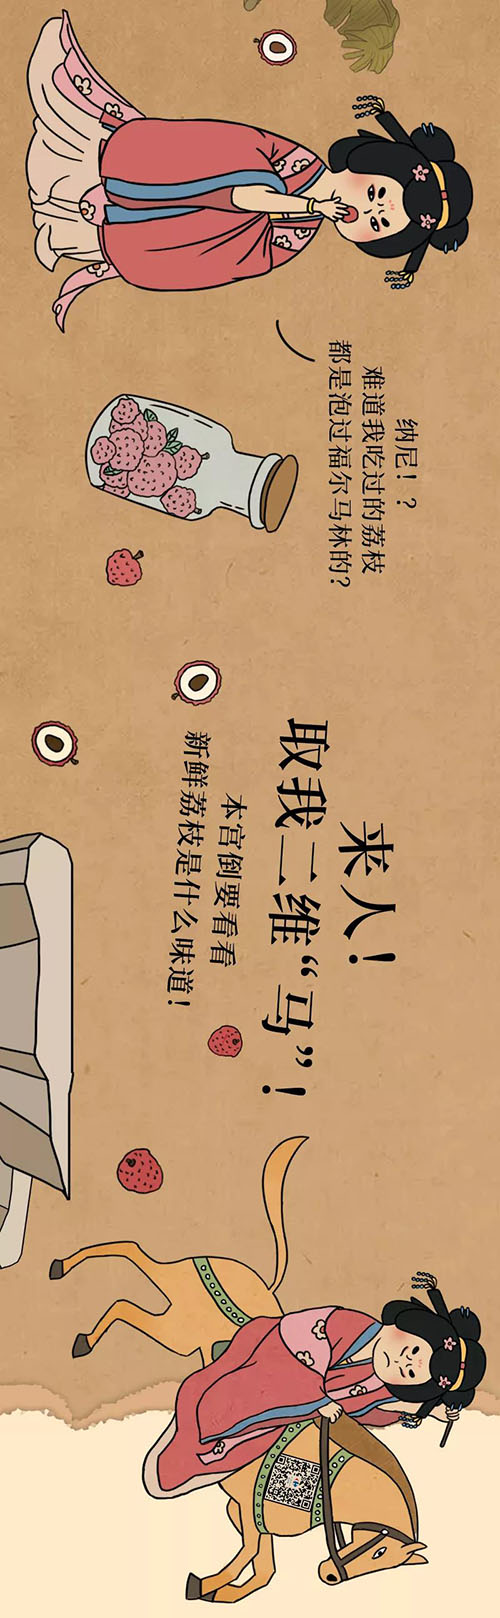 纳尼！？
难道我吃过的荔枝
都是泡过福尔马林的？
来人！
取我二维“马”！
本宫倒要看看
新鲜荔枝是什么味道！